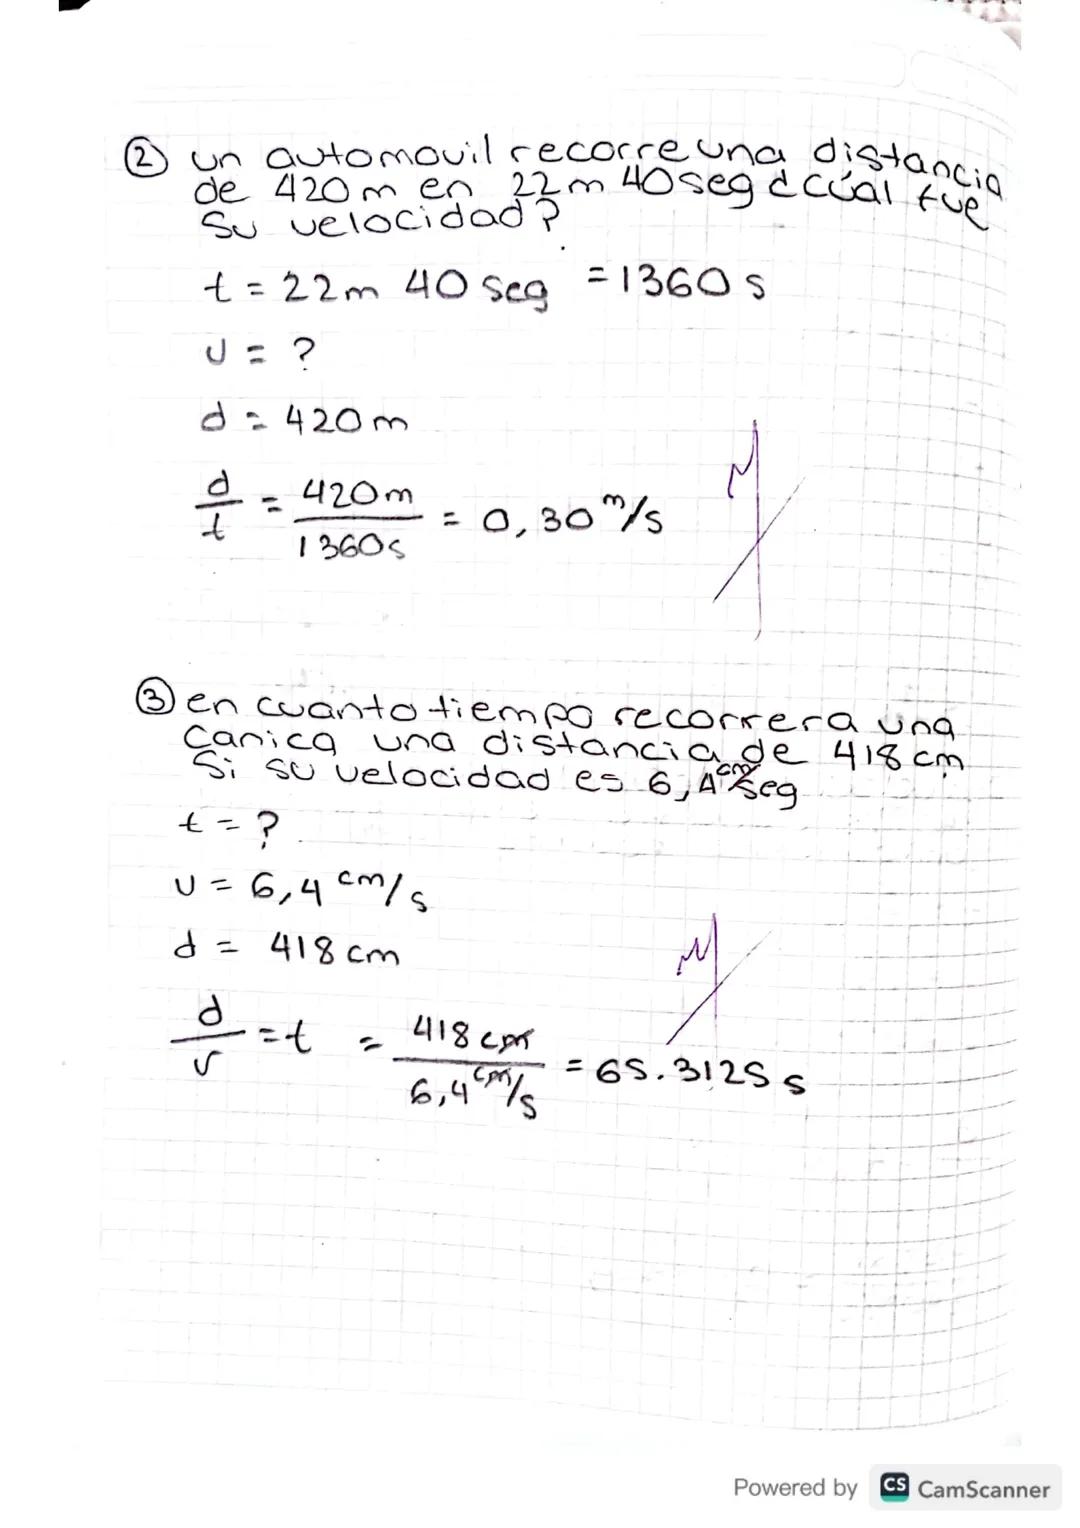 ② un automovil recorre una distancia
de 420 m en 22m 40seg ¿cúal fue
Su velocidad?
t = 22m 40 seg = 1360 s
v = ?
d = 420 m
d/t = 420m/1360s = 0,30 m/s
③ en cuanto tiempo recorrera una
Canica una distancia de 418 cm
Si su velocidad es 6,4 cm/seg
t = ?
v = 6,4 cm/s
d = 418 cm
d/v = t = 418 cm/6,4 cm/s = 65.3125 s
Powered by CS CamScanner